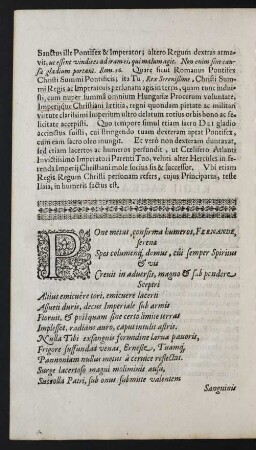 Sanctus ille Pontifex & Imperator; altero Regum dextras armavit, ut essent vindices ad iram ei, qui malum agit. Non enim sine causa gladium portant. Rom. 13. Quare sicut Romanus Pontifex
Christi Summi Pontificis; ita Tu, Rex Serenissime, Christi Summi Regis ac Imperatoris personam agis in terris, quam tunc induisti, cum nuper summâ omnium Hungariæ Procerum voluntate,
Imperijque Christiani lætitia, regni quondam pietate ac militari
virtute clarissimi
acceptisti. Quo tempore simul etiam
accinctus fuisti, cui stringendo tuam dexteram aptat Pontifex,
cùm eam sacro oleo inungit. Et verò non dexteram duntaxat,
sed etiam lacertos ac humeros perfundit, ut
Invictissimo Imperatori Parenti Tuo, veluti alter Hercules in ferenda Imperij Christiani mole socius sis & successor. Vbi etiam
Regis Regum Christi personam refers, cujus Principatus, teste
Isaia, in humeris factus est.
Pone metus, confirma humeros, FERNANDE,
serena
Spes columenq; domus, cui semper Spiritus
& vis
Crevit in adversis, magno & sub pondere
Sceptri
Altius emicuêre tori, emicuêre lacerti
Assueti duris, decus Imperiale sub armis
Floruit, & postquam sine certo limite terras
Implesset, radians auro, caput intulit astris.
Nulla Tibi exsanguis formidine larva pavoris,
Frigore suffundat venas, Erneste, Tuamq;
Pannoniam nullus metus à cervice reflectat.
Surge lacertose magni moliminis ausu,
Succolla Patri, sub onus submitte valentem
Sanguinis